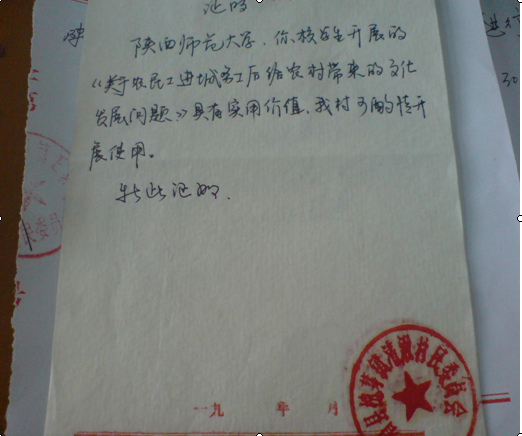 证明
陕西师范大学，你校学生开展的
《关于农民工进城务工后给农村带来的文化
发展问题》具有实用价值，我村可酌情开
展使用。
特此证明.
一九 年 月
村民委员会
进行
30